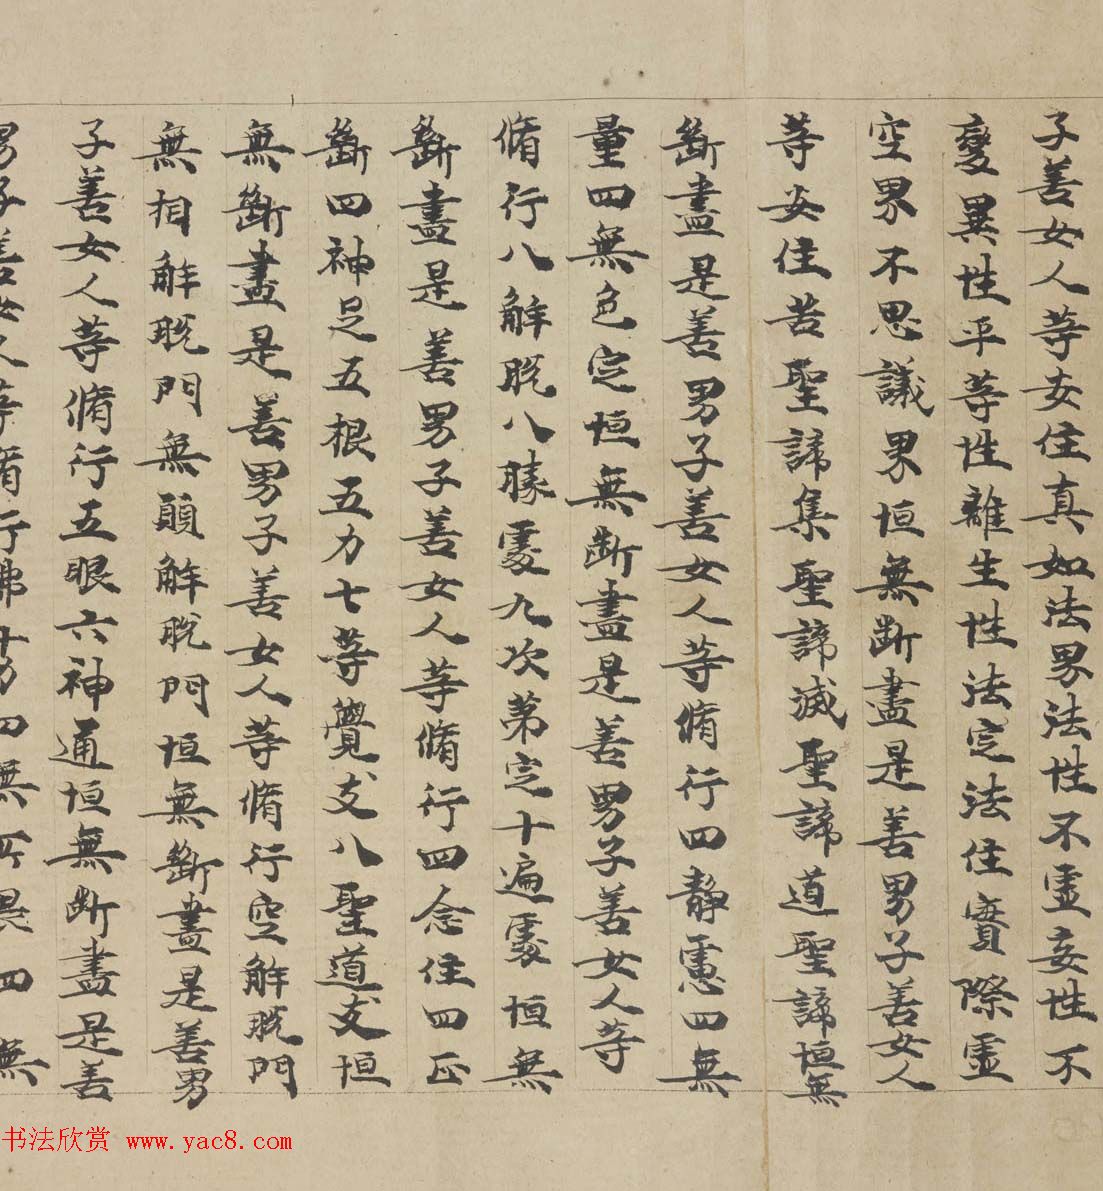 子善女人等安住真如法界法性不虛妄性不
變異性平等性離生性法定法住實際虛
空界不思議界恒無斷盡是善男子善女人
等安住苦聖諦集聖諦滅聖諦道聖諦恒無
斷盡是善男子善女人等脩行四靜慮四無
量四無色定恒無斷盡是善男子善女人等
脩行八解脫八勝處九次第定十遍處恒無
斷盡是善男子善女人等脩行四念住四正
斷四神足五根五力七等覺支八聖道支恒
無斷盡是善男子善女人等脩行空解脫門
無相解脫門無願解脫門恒無斷盡是善男
子善女人等脩行五眼六神通恒無斷盡是善
男子善女人等脩行佛十力四無所畏四無
书法欣赏 www.yac8.com